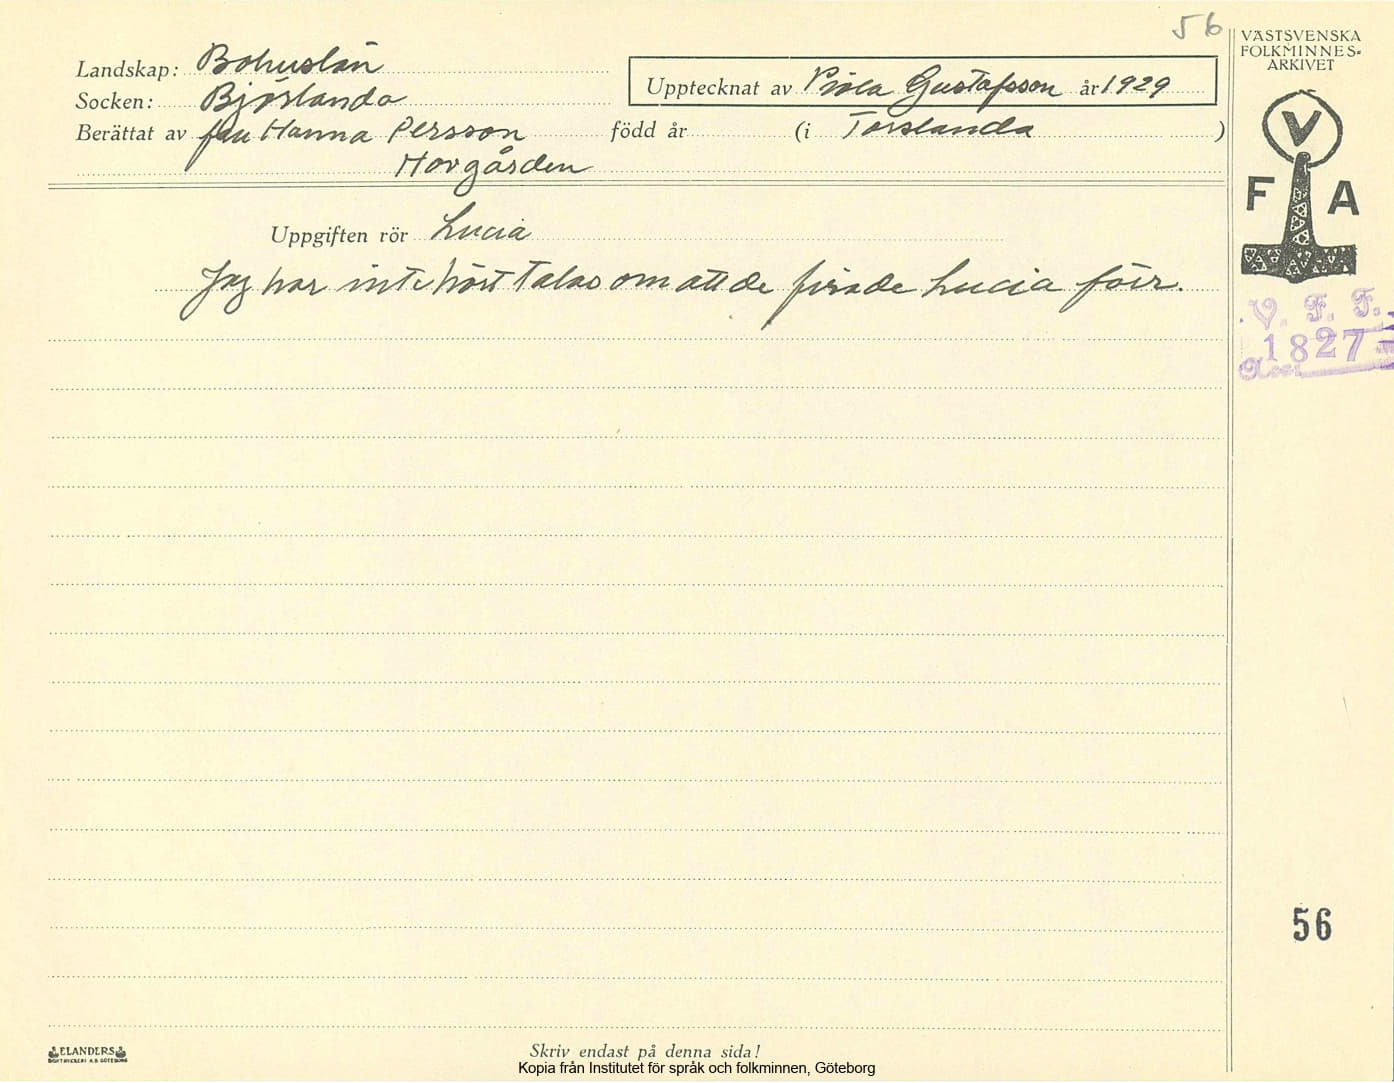 56
Landskap: Bohuslän
Socken: Björlanda
Berättat av fru Hanna Persson född år (i Torslanda)
Horgården
Upptecknat av Viola Gustafsson år 1929
Uppgiften rör Lucia
Jag har inte hört talas om att de firade Lucia förr.
VÄSTSVENSKA
FOLKMINNES-
ARKIVET
V
F A
V. F. F.
1827
56
ELANDERS
Skriv endast på denna sida!
Kopia från Institutet för språk och folkminnen, Göteborg